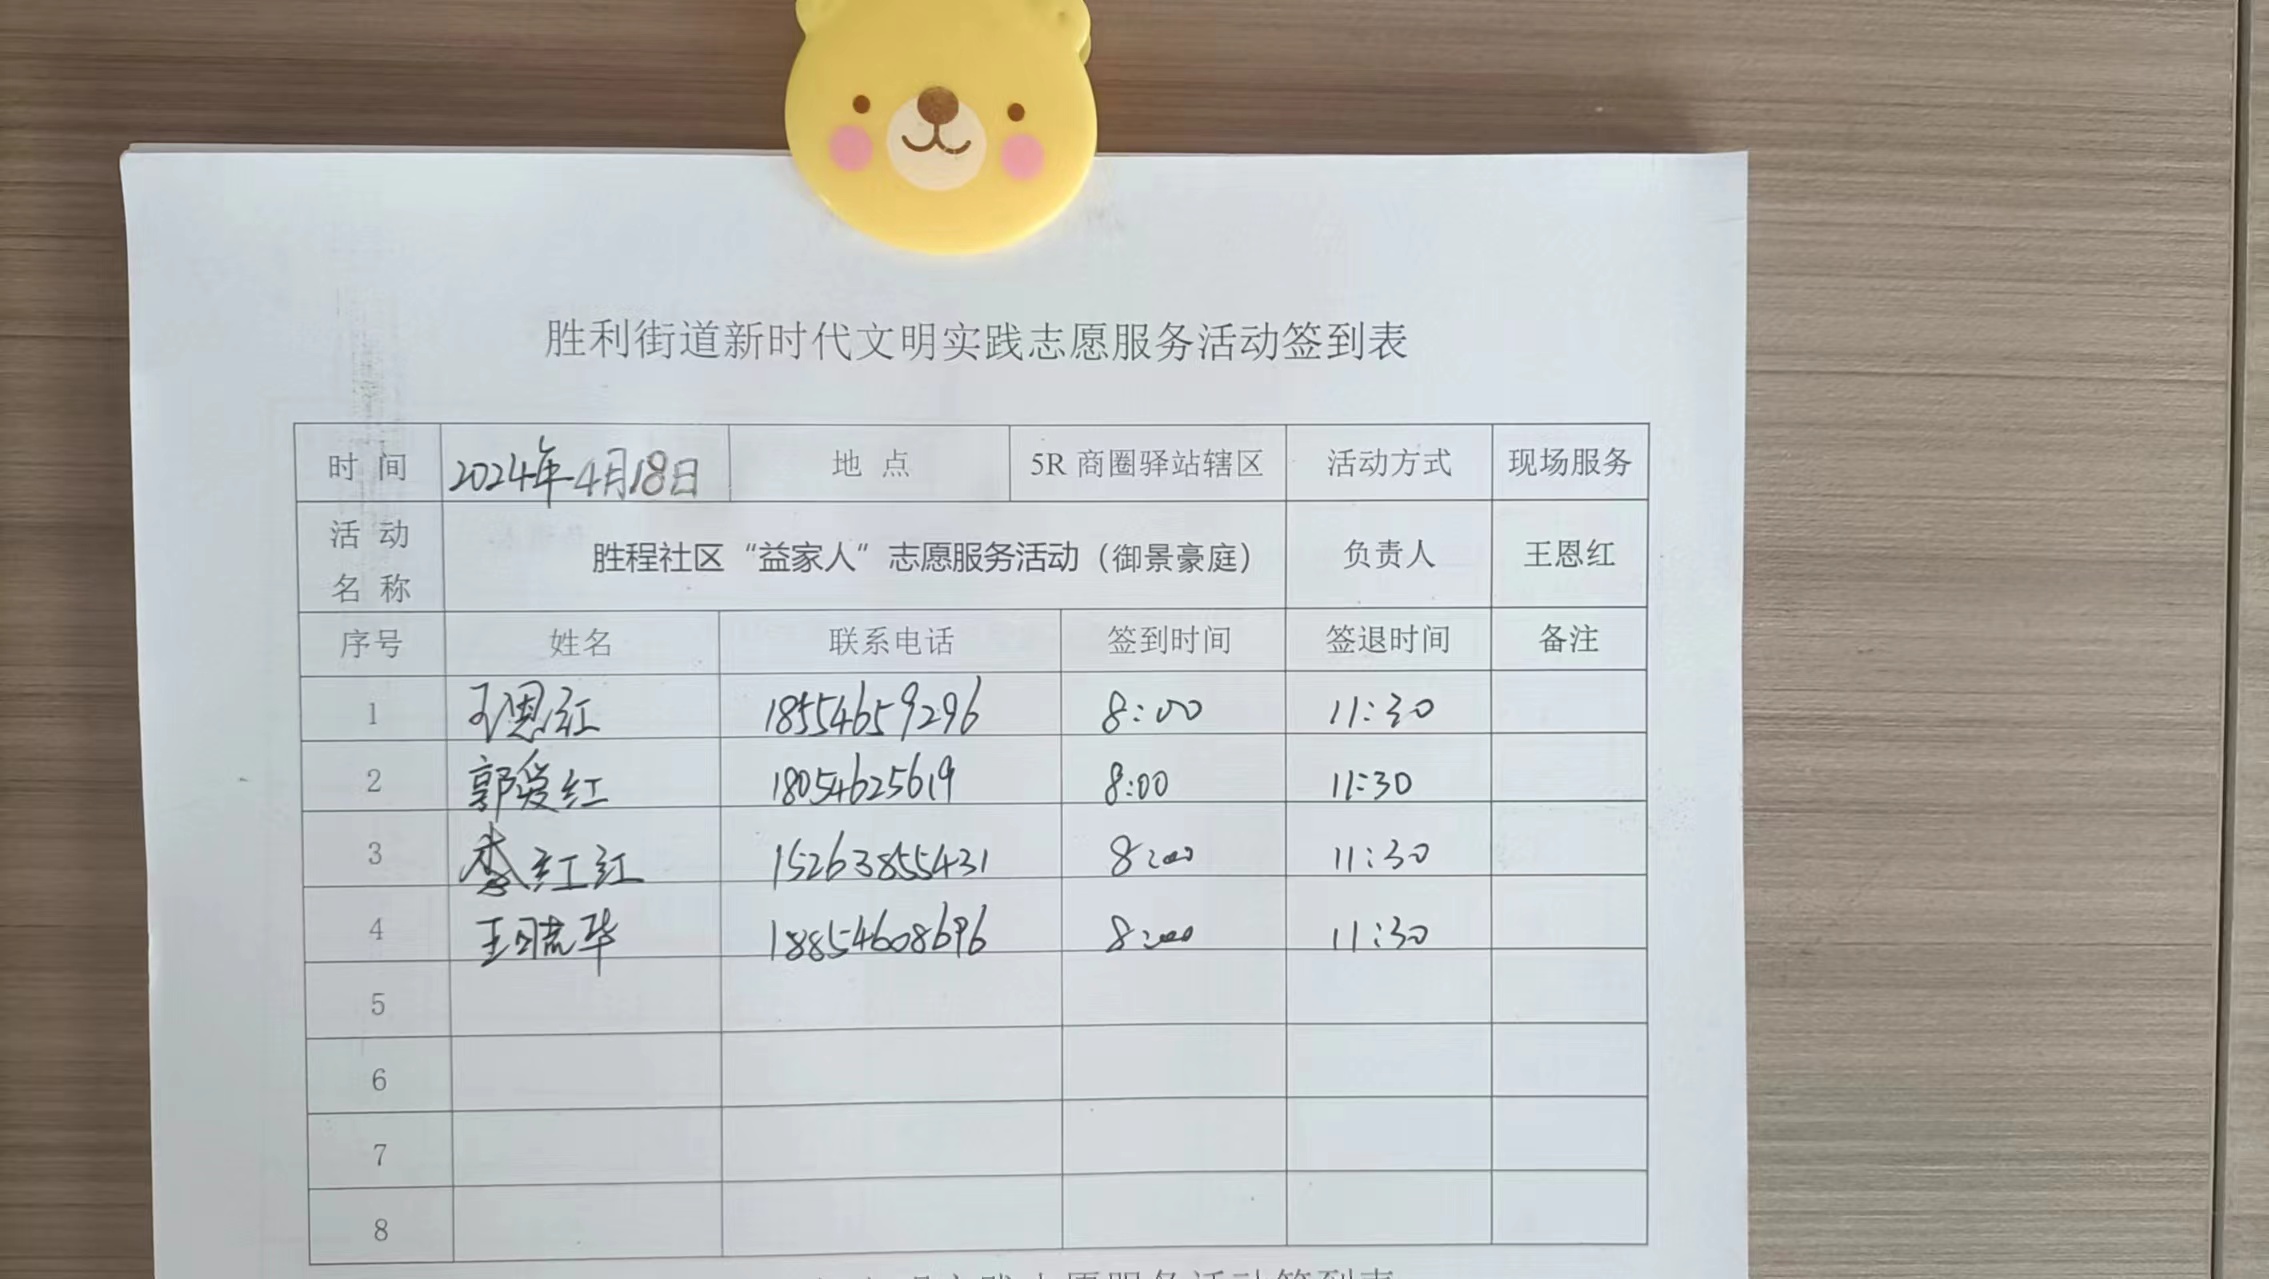 胜利街道新时代文明实践志愿服务活动签到表
时 间 2024年4月18日 地 点 5R 商圈驿站辖区 活动方式 现场服务
活 动
名 称 胜程社区“益家人”志愿服务活动（御景豪庭） 负责人 王恩红
序号 姓名 联系电话 签到时间 签退时间 备注
1 王恩红 18554659296 8:00 11:30
2 郭爱红 18054625619 8:00 11:30
3 李红红 15263855431 8:00 11:30
4 王晓华 18854608696 8:00 11:30
5
6
7
8
文明实践志愿服务活动签到表